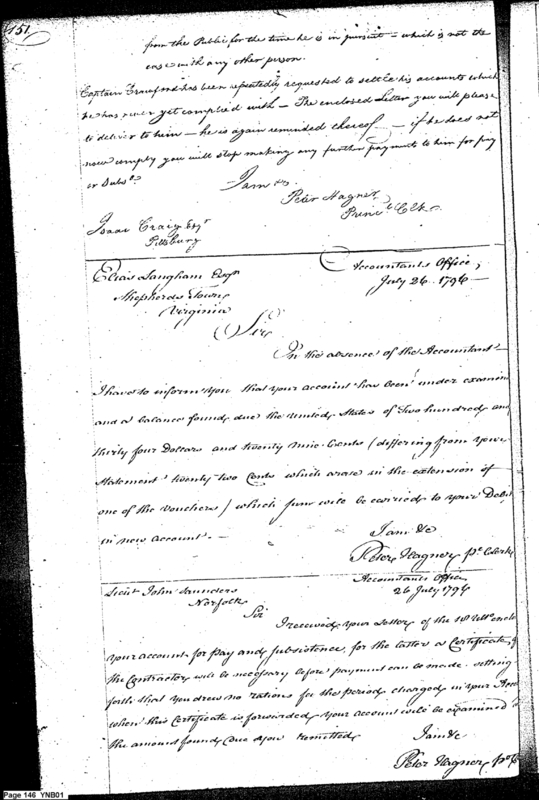 151
from the Public for the time he is in pursuit – which is not the
case with any other person.
Captain Crawford has been repeatedly requested to settle his accounts which
he has never yet complied with – The enclosed Letter you will please
to deliver to him – he is again reminded thereof – if he does not
now comply you will stop making any further payments to him for pay
or Subse
I am &c
Peter Hagner
Princl Clk
Isaac Craig Esqr
Pittsburg
Elias Langham Esqr
Shepherds Town
Virginia
Accountants Office,
July 26. 1796 –
Sir
In the absence of the Accountant –
I have to inform you that your account has been under examin
and a balance found due the United States of Two hundred and
thirty four Dollars and twenty nine Cents (differing from your
statement twenty two Cents which arose in the extension of
one of the vouchers) which sum will be carried to your Debit
in new account. –
I am &c
Peter Hagner pl Clerk
Accountants Office
26 July 1796
Lieut John Saunders
Norfolk
Sir
I received your Letter of the Ulto enclo
your account for pay and subsistence, for the latter a Certificate of
the Contractor will be necessary before payment can be made – setting
forth that you drew no rations for the period charged in your Acco
when this Certificate is forwarded your account will be examined &
the amount found due you remitted
I am &c
Peter Hagner pl C
Page 146 YNB01